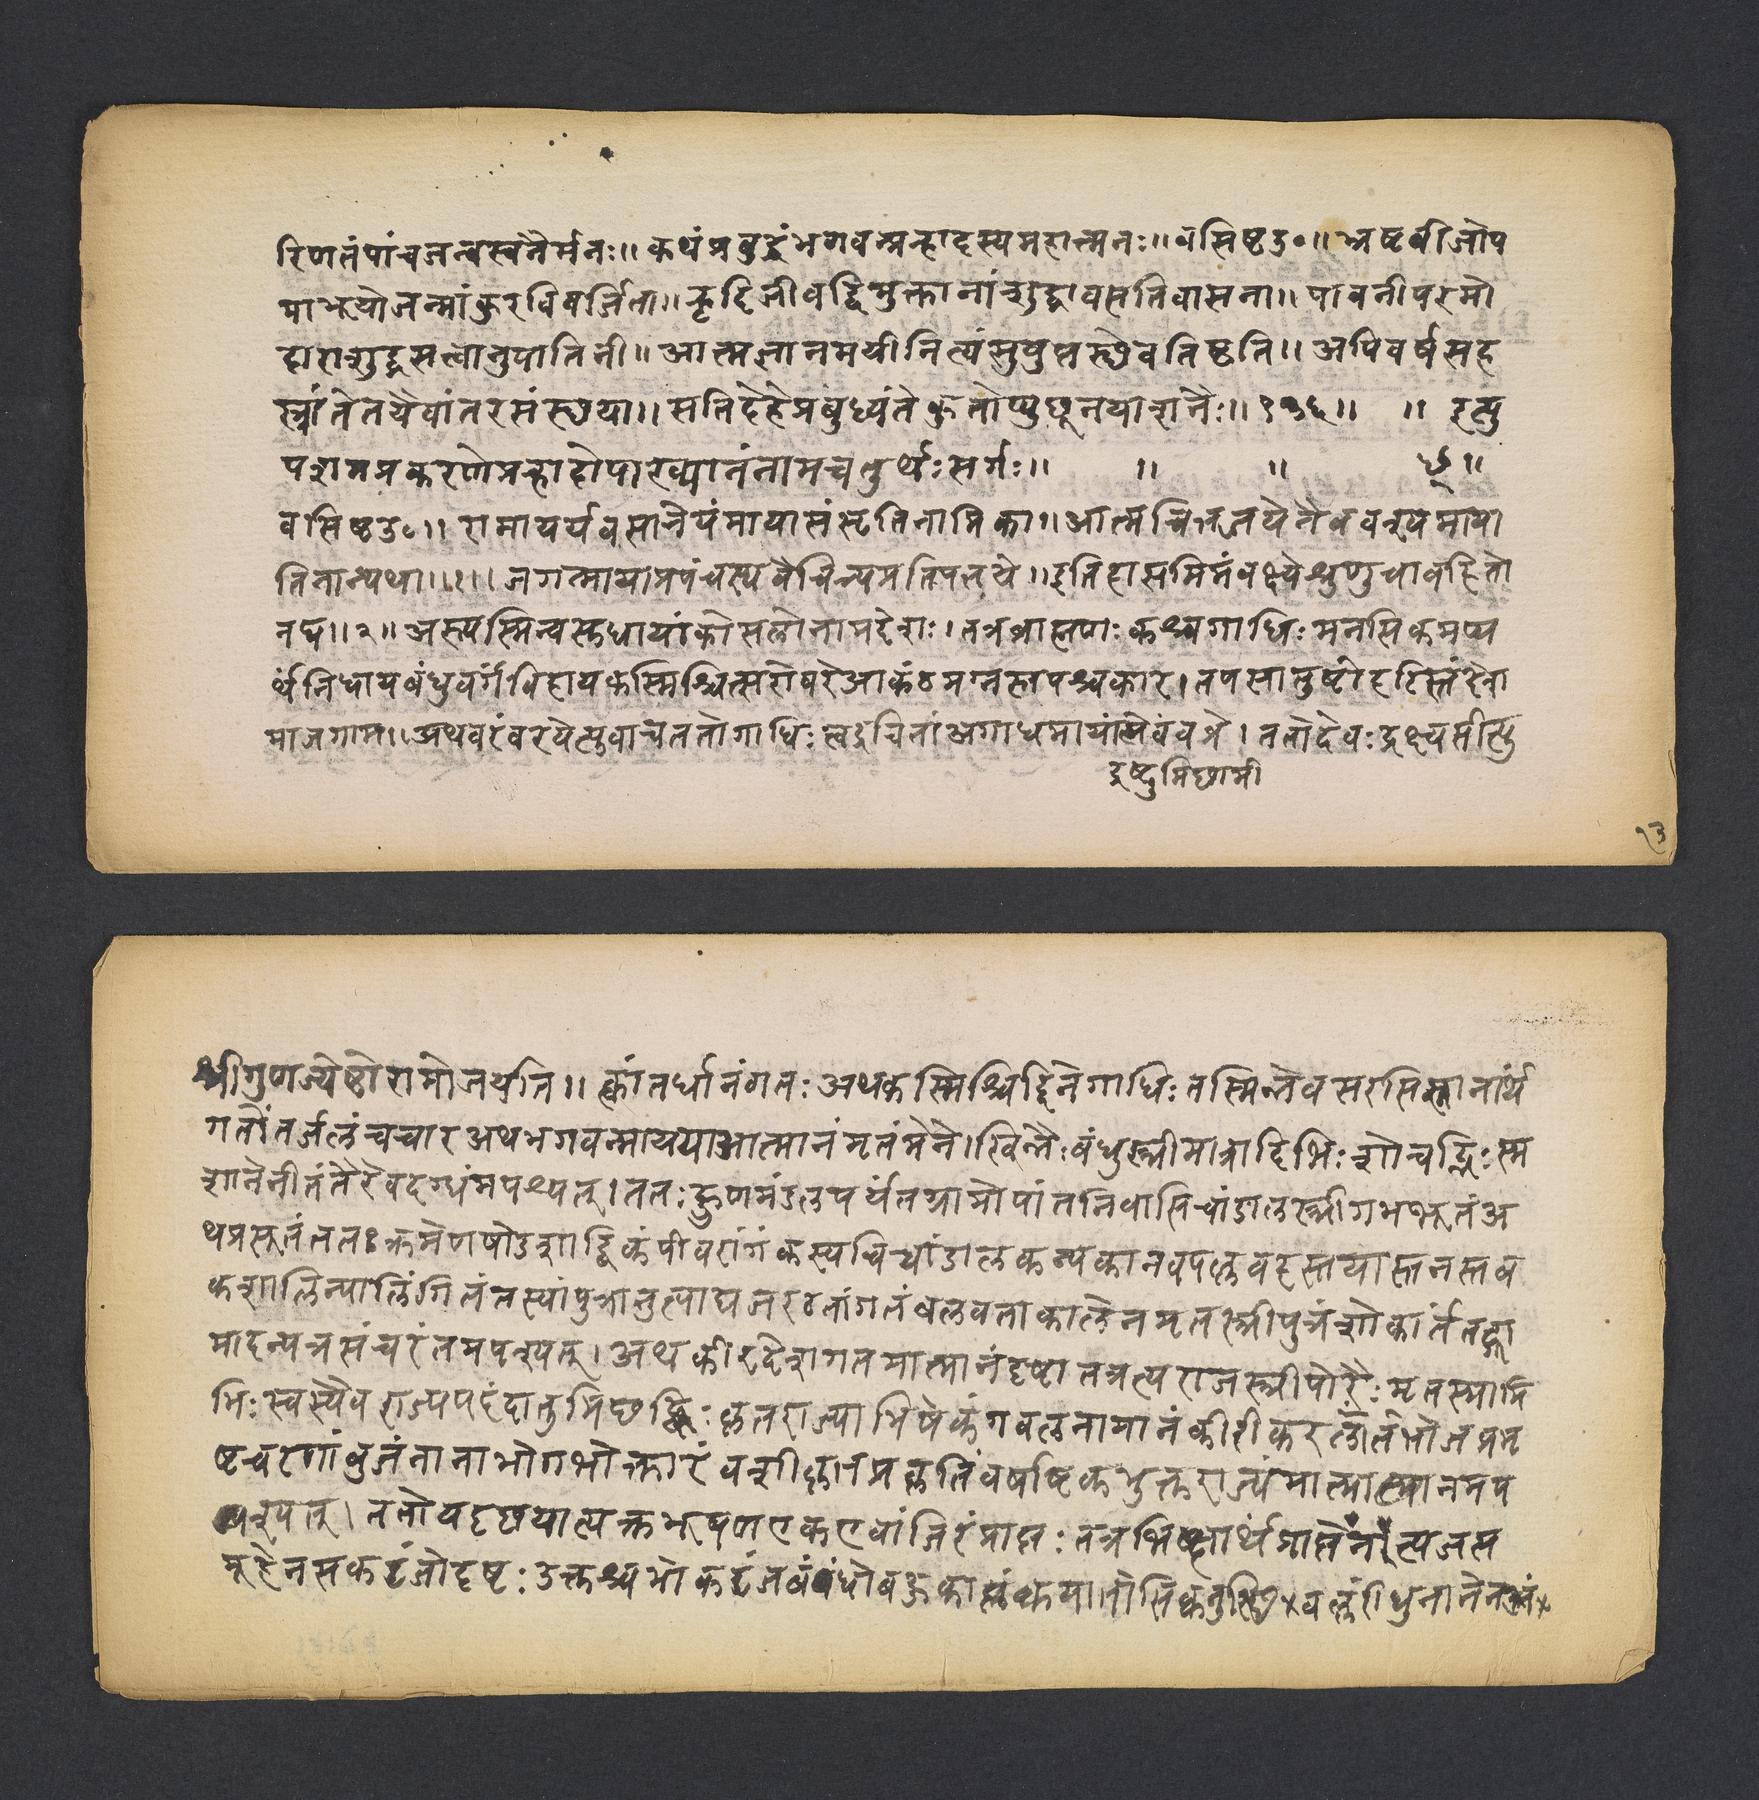 रिणतंपांचजन्यस्वनैर्मनः॥ कथंप्रबुद्धंभगवन्प्रन्हादस्यमहात्मनः॥ वसिष्ठउ०॥ भ्रष्टबीजोप
माभूयोजन्मांकुरविवर्जिता॥ हृदिजीवद्विमुक्तानांशुद्धावसतिवासना॥ पावनीपरमो
दाराशुद्धसत्वानुपातिनी॥ आत्मज्ञानमयीनित्यंसुषुप्तस्थेवतिष्ठति॥ अपिवर्षसह
स्त्रांतेतयैवांतरसंस्थया॥ सतिदेहेप्रबुध्यंतेकुतोप्युछूनयाशनैः॥ ॥ इत्यु
पशमप्रकरणेप्रन्हादोपाख्यानंनामचतुर्थःसर्गः॥ ॥ ॥ ॥
वसिष्ठउ०॥ रामायर्यवसानेयंमायासंसृतिनामिका॥ आत्मचित्तजयेनैवक्षयमाया
तिनान्यथा॥१॥ जगन्मायाप्रपंचस्यवैचित्र्यप्रतिपत्तये॥ इतिहासमिमंवक्ष्येश्रुणुचावहितो
नघ॥२॥ अस्त्यस्मिन्वसुधायांकोसलोनामदेशः। तत्रब्राह्मणः कश्चगाधिः मनसिकमप्य
र्थंनिधायबंधुवर्गंविहायकस्मिंश्चित्सरोवरेआकंठमग्नस्तपश्चकार। तपसातुष्टोहरिस्तंदेवो
माजगाम॥ अथवरंवरयेत्युवाचततोगाधिः त्वद्रचितांअगाधमायांमेवंवव्रे। ततोदेवः द्रक्ष्यसीत्यु
द्रष्टुमिछामी
१३
श्रीगुणज्येष्ठोरामोजयति॥ क्त्वांतर्धानंगतः अथकस्मिंश्चिद्दिनेगाधिः तस्मिन्नेवसरसिस्नानार्थं
गतोंतर्जलंचचार अथभगवन्माययाआत्मानंमृतंमेने। खिन्नैः बंधुस्त्रीमात्रादिभिः शोचद्भिः स्म
शानेनीतंतैरेवदग्धंमपश्यत्। ततः हूणमंडलपर्यंतग्रामोपांतनिवासिचांडालस्त्रीगर्भभूतंअ
थप्रसूतंततःक्रमेणषोडशाद्विकंपीवरांगंकस्यचिच्चांडालकन्यकानवपल्लवहस्तयास्तनस्तब
कशालिन्यालिंगितंतस्यांपुत्रानुत्पाद्यजरठतांगतंबलवताकालेनमृतस्त्रीपुत्रंशोकार्तंतद्ग्रा
मादन्यत्रसंचरंतमपश्यत्। अथकीरदेशगतमात्मानंदृष्टातत्रत्यराजस्त्रीपौरैः मृतस्वामि
भिः स्वस्यैवराज्यपदंदातुमिछद्भिः कृतराज्याभिषेकंगवलनामानंकीरीकर
ष्टचरणांबुजंनानाभोगभोक्तारंवशीकृतप्रकृतिं
पश्यत्। ततोयदृछयात्यक्तभूषणएकएवांजिरंप्राप्तः तत्र
मूहेनसकटंजोदृष्टः उक्तश्चभोकटंजबंधो